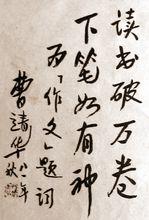 读书破万卷
下笔如有神
为「作文」题词
曹靖华
八一年秋